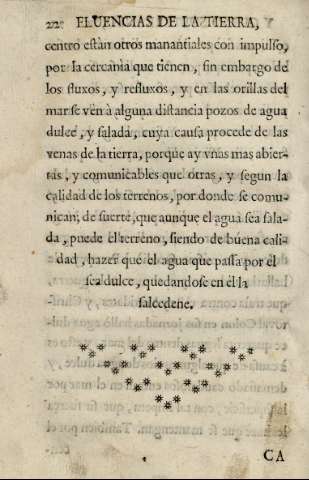 22 FLUENCIAS DE LA TIERRA,
centro están otros manantiales con impulso,
por la cercania que tienen, sin embargo de
los fluxos, y refluxos, y en las orillas del
mar se ven à alguna distancia pozos de agua
dulce, y salada, cuya causa procede de las
venas de la tierra, porque ay vnas mas abier-
tas, y comunicables que otras, y segun la
calidad de los terrenos, por donde se comu-
nican; de suerte, que aunque el agua sea sala-
da, puede el terreno, siendo de buena cali-
dad, hazer que el agua que passa por él
sea dulce, quedandose en él la
salcedene.
CA